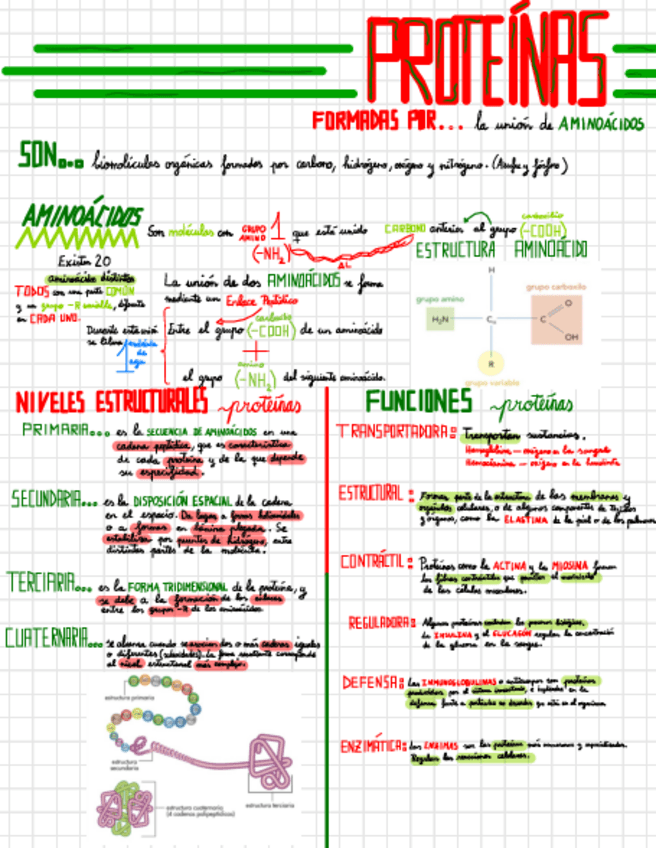 PROTEÍNAS
FORMADAS POR... la unión de AMINOÁCIDOS
SON... biomoléculas orgánicas formadas por carbono, hidrógeno, oxígeno y nitrógeno. (Azufre y fósforo)
AMINOÁCIDOS
Son moléculas con GRUPO AMINO (-NH₂) 1 que está unido CARBONO anterior al grupo carboxilo (-COOH)
AL
Existen 20
aminoácidos distintos
TODOS con una parte COMÚN
y un grupo -R variable, diferente
en CADA UNO.
La unión de dos AMINOÁCIDOS se forma
mediante un Enlace Peptídico
Durante esta unión
se libera
1 molécula de agua
Entre el grupo carboxilo (-COOH) de un aminoácido
+
el grupo amino (-NH₂) del siguiente aminoácido.
ESTRUCTURA AMINOÁCIDO
H
grupo amino
grupo carboxilo
H₂N
C
C
O
OH
R
grupo variable
NIVELES ESTRUCTURALES ~proteínas
PRIMARIA... es la SECUENCIA DE AMINOÁCIDOS en una
cadena peptídica, que es característica
de cada proteína y de la que depende
su especificidad.
SECUNDARIA... es la DISPOSICIÓN ESPACIAL de la cadena
en el espacio. Da lugar a formas helicoidales
o a formas en lámina plegada. Se
estabiliza por puentes de hidrógeno, entre
distintas partes de la molécula.
TERCIARIA... es la FORMA TRIDIMENSIONAL de la proteína, y
se debe a la formación de los enlaces
entre los grupos -R de los aminoácidos.
CUATERNARIA... se alcanza cuando se asocian dos o más cadenas iguales
o diferentes (subunidades). La forma resultante corresponde
al nivel estructural más complejo.
estructura primaria
estructura
secundaria
estructura terciaria
estructura cuaternaria
(4 cadenas polipeptídicas)
FUNCIONES ~proteínas
TRANSPORTADORA: Transportan sustancias.
Hemoglobina — oxígeno en la sangre
Hemocianina — oxígeno en la hemolinfa
ESTRUCTURAL: Forman parte de la estructura de las membranas y
orgánulos celulares, o de algunos componentes de tejidos
y órganos, como la ELASTINA de la piel o de los pulmones
CONTRÁCTIL: Proteínas como la ACTINA y la MIOSINA forman
las fibras contráctiles que permiten el movimiento
de las células musculares.
REGULADORA: Algunas proteínas controlan los procesos biológicos.
La INSULINA y el GLUCAGÓN regulan la concentración
de la glucosa en la sangre.
DEFENSA: Las INMUNOGLOBULINAS o anticuerpos son proteínas
producidas por el sistema inmunitario, e implicadas en la
defensa frente a partículas
ENZIMÁTICA: Las ENZIMAS son las proteínas más numerosas y especializadas.
Regulan las reacciones celulares.